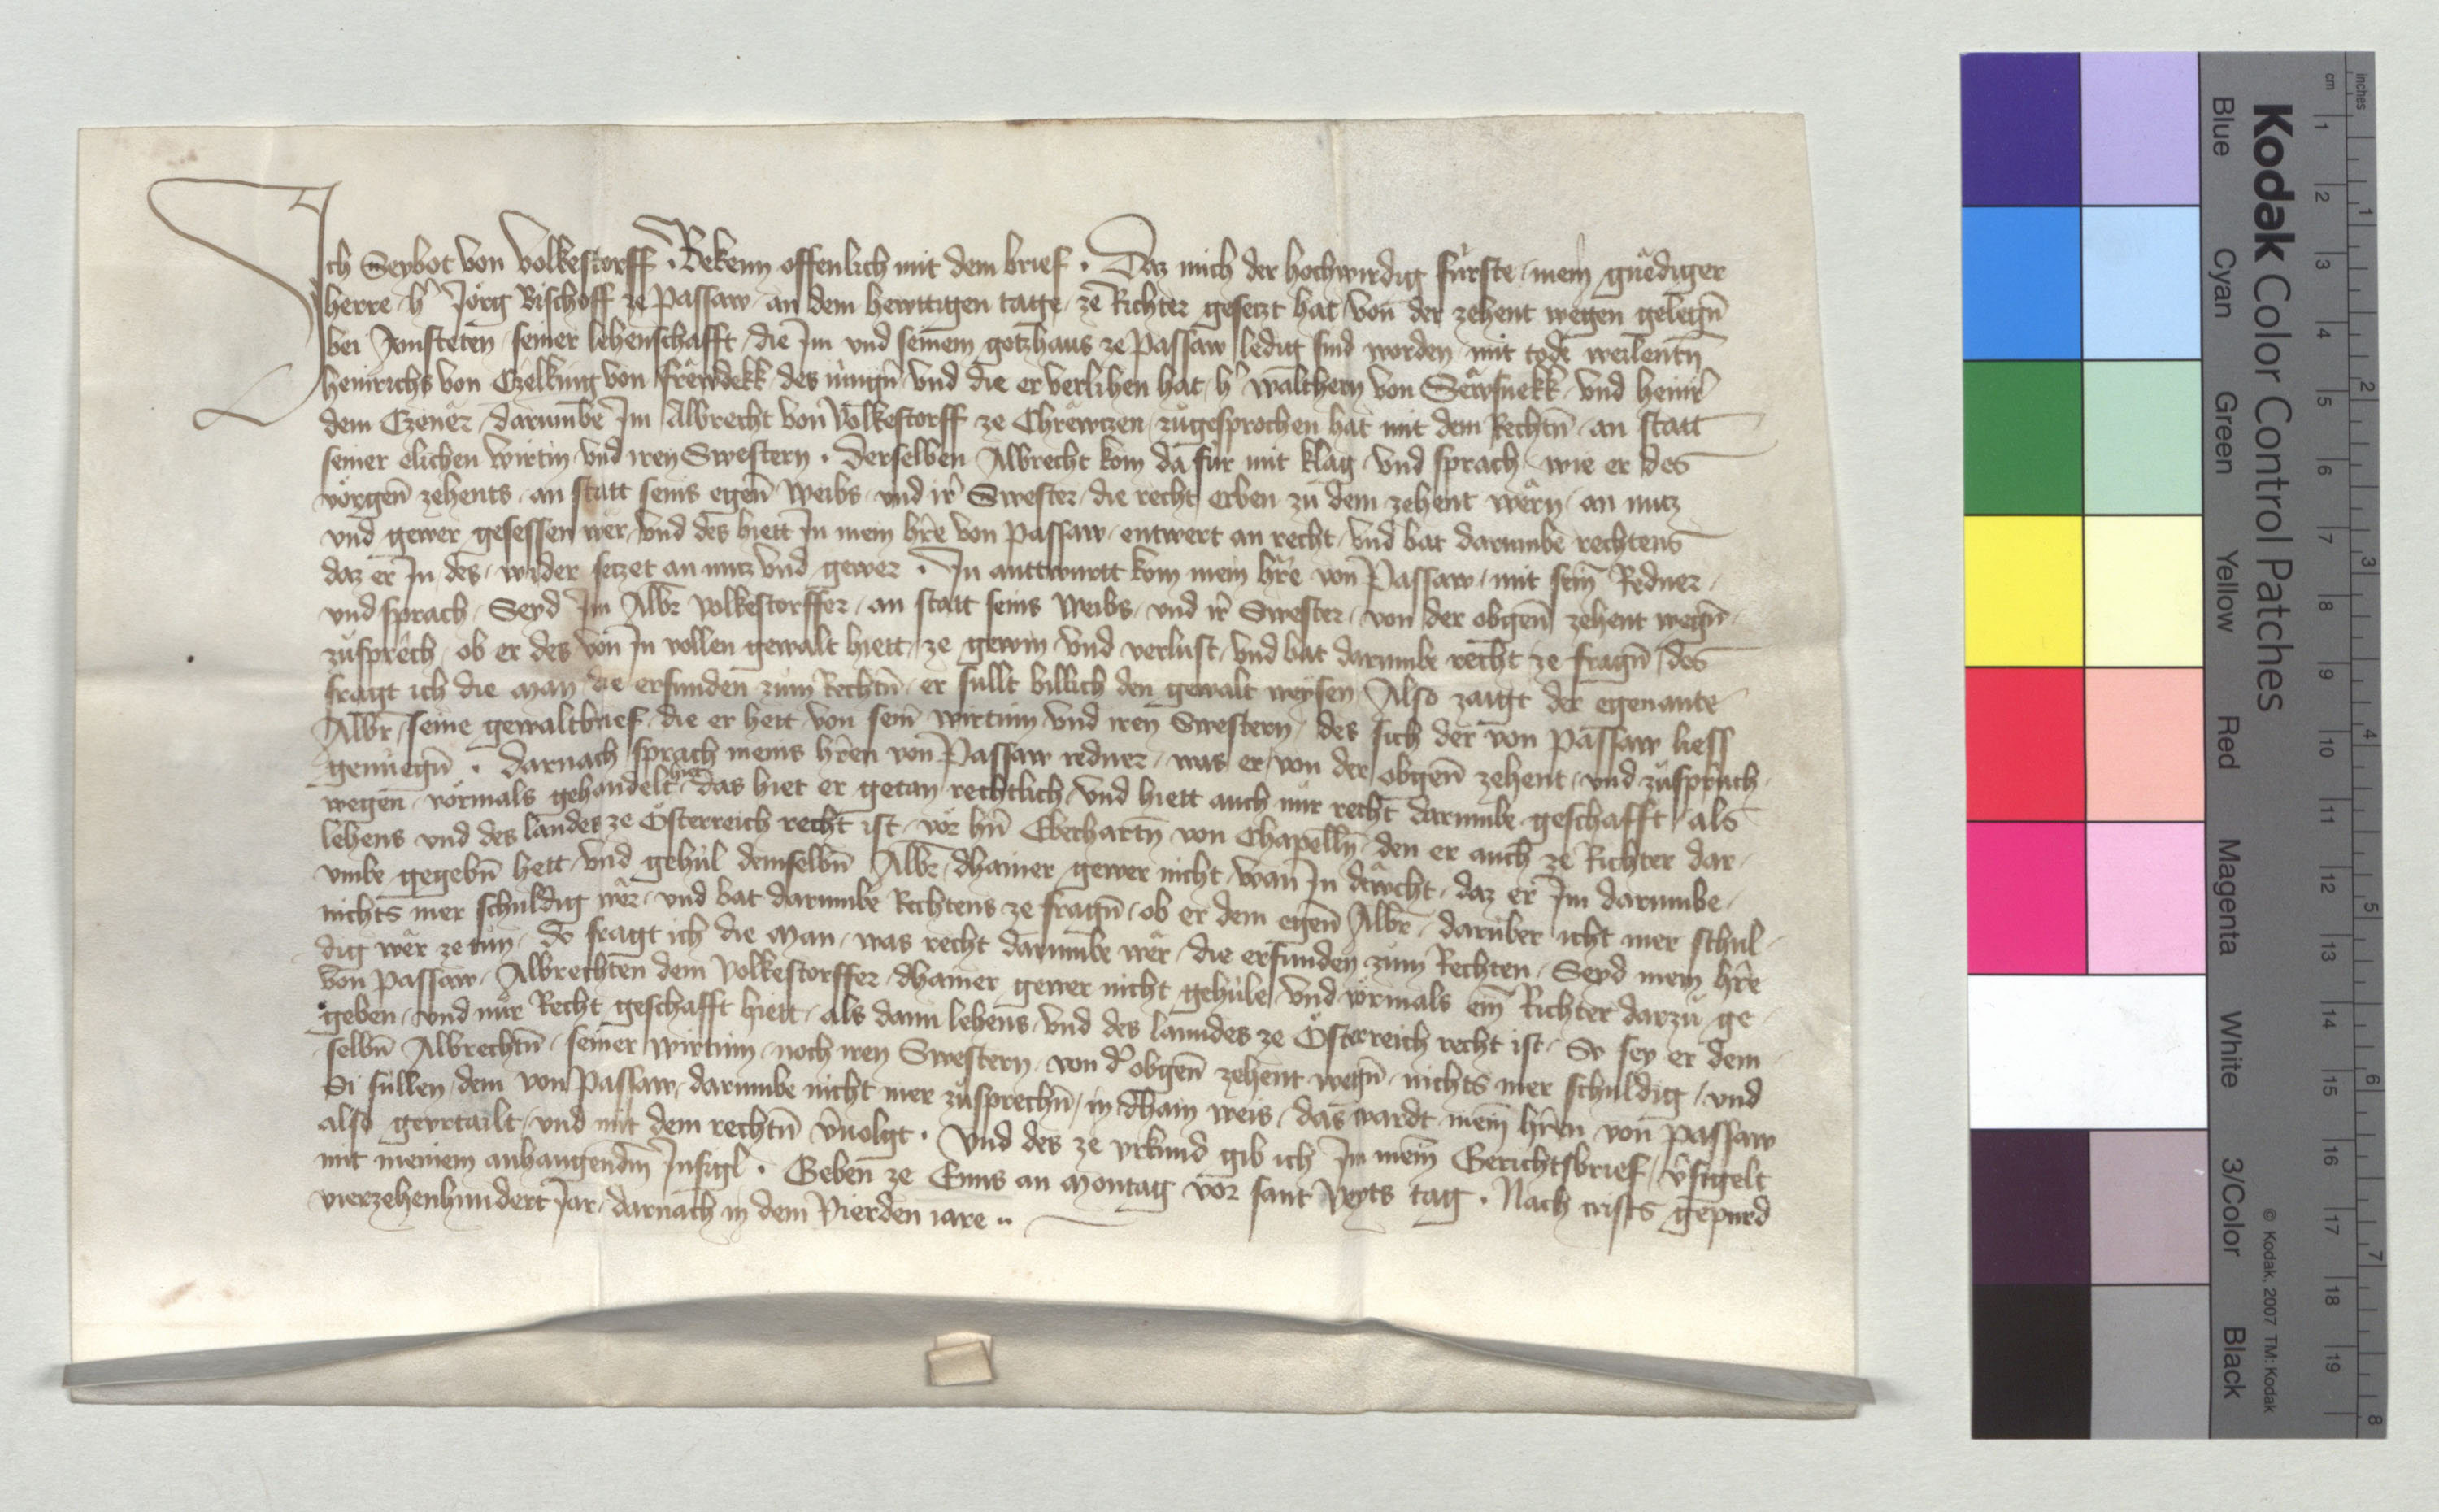 Ich Seybot von Volkestorff · Bekenn offenlich mit dem brief · Daz mich der hochwirdig fürste mein gnëdiger
herre h' Jörg Bischoff ze Passaw an dem hewttigen tage ze Richter gesetzt hat von der zehent wegen gelegn̄
bei Jensteten seiner lehenschafft die Im vnd seinem gotzhaus ze Passaw ledig sind worden mit tode weilentn̄
heinrichs von Czelking von frewdekk des jüngn̄ vnd die er verlihen hat h' walthern von Sewsnekk vnd heinr'
dem Czener darumbe Im Albrecht von Volkestorff ze Chrewczen zugesprochen hat mit dem Rechtn̄ an statt
seiner elichen wirtin vnd iren Swestern · Derselben Albrecht kom da für mit klag vnd sprach wie er des
vorgen̄ zehents an statt seins egen̄ Weibs vnd ir' Swester die recht erben zu dem zehent wërn an nutz
vnd gewer gesessen wër vnd des hiett In mein hr̄e von Passaw entwert an recht vnd bat darumbe rechtens
daz er In des wider setzet an nutz vnd gewer · In anttwurtt kom mein hr̄e von Passaw mit sein̄ Redner
vnd sprach Seyd Im Albr̄ Volkestorffer an statt seins Weibs vnd ir' Swester von der obgen̄ zehent wegn̄
zusprëch ob er des von In vollen gewalt hiett ze gewin vnd verlust vnd bat darumbe recht ze fragn̄ des
fragt ich die man die erfunden zum Rechtn̄ er sullt billich den gewalt weysen Also zaigt der egenante
Albr̄ seine gewaltbrief die er hett von sein̄ wirtinn vnd iren Swestern des sich der von Passaw liess
genuegn̄ · Darnach sprach meins hr̄en von Passaw redner was er von der obgen̄ zehent vnd zusprüch
wegen vormals gehandelt hiet das hiet er getan rechtlich vnd hiett auch nur recht darumbe geschafft als
lehens vnd des landes ze Österreich recht ist vor hn̄ Eberhartn̄ von Chapelln̄ den er auch ze Richter dar
vmbe gegebn̄ hett vnd gehul demselbn̄ Albr̄ dhainer gewer nicht wan In dewcht daz er Im darumbe
nichts mer schuldig wër vnd bat darumbe Rechtens ze fragn̄ ob er dem egen̄ Albr̄ darüber icht mer schul
dig wër ze tun do fragt ich die man was recht darumbe wër die erfunden zum Rechten Seyd mein hr̄e
von Passaw Albrechten dem Volkestorffer dhainer gewer nicht gehüle vnd vormals ein̄ Richter darzu ge
geben vnd nur Recht geschafft hiett als dann lehens vnd des lanndes ze Österreich recht ist So sey er dem
selbn̄ Albrechtn̄ seiner wirtinn noch iren Swestern von d' obgen̄ zehent wegn̄ nichts mer schuldig vnd
Si süllen dem von Passaw darumbe nicht mer zusprechn̄ in dhain weis das wardt mein̄ hr̄en von Passaw
also geurtailt vnd mit dem rechtn̄ v̄uolgt · Vnd des ze vrkund gib ich Im mein̄ Gerichtsbrief v̄sigelt
mit meinem anhangendm̄ Insigl · Geben ze Enns an montag vor sant Veyts tag · Nach crists gepurd
vierzehenhundert Jar darnach in dem Vierden iare
Kodak Color Control Patches
Blue Cyan Green Yellow Red Magenta White 3/Color Black
cm 1 2 3 4 5 6 7 8 9 10 11 12 13 14 15 16 17 18 19
inches 1 2 3 4 5 6 7 8
© Kodak, 2007 TM: Kodak